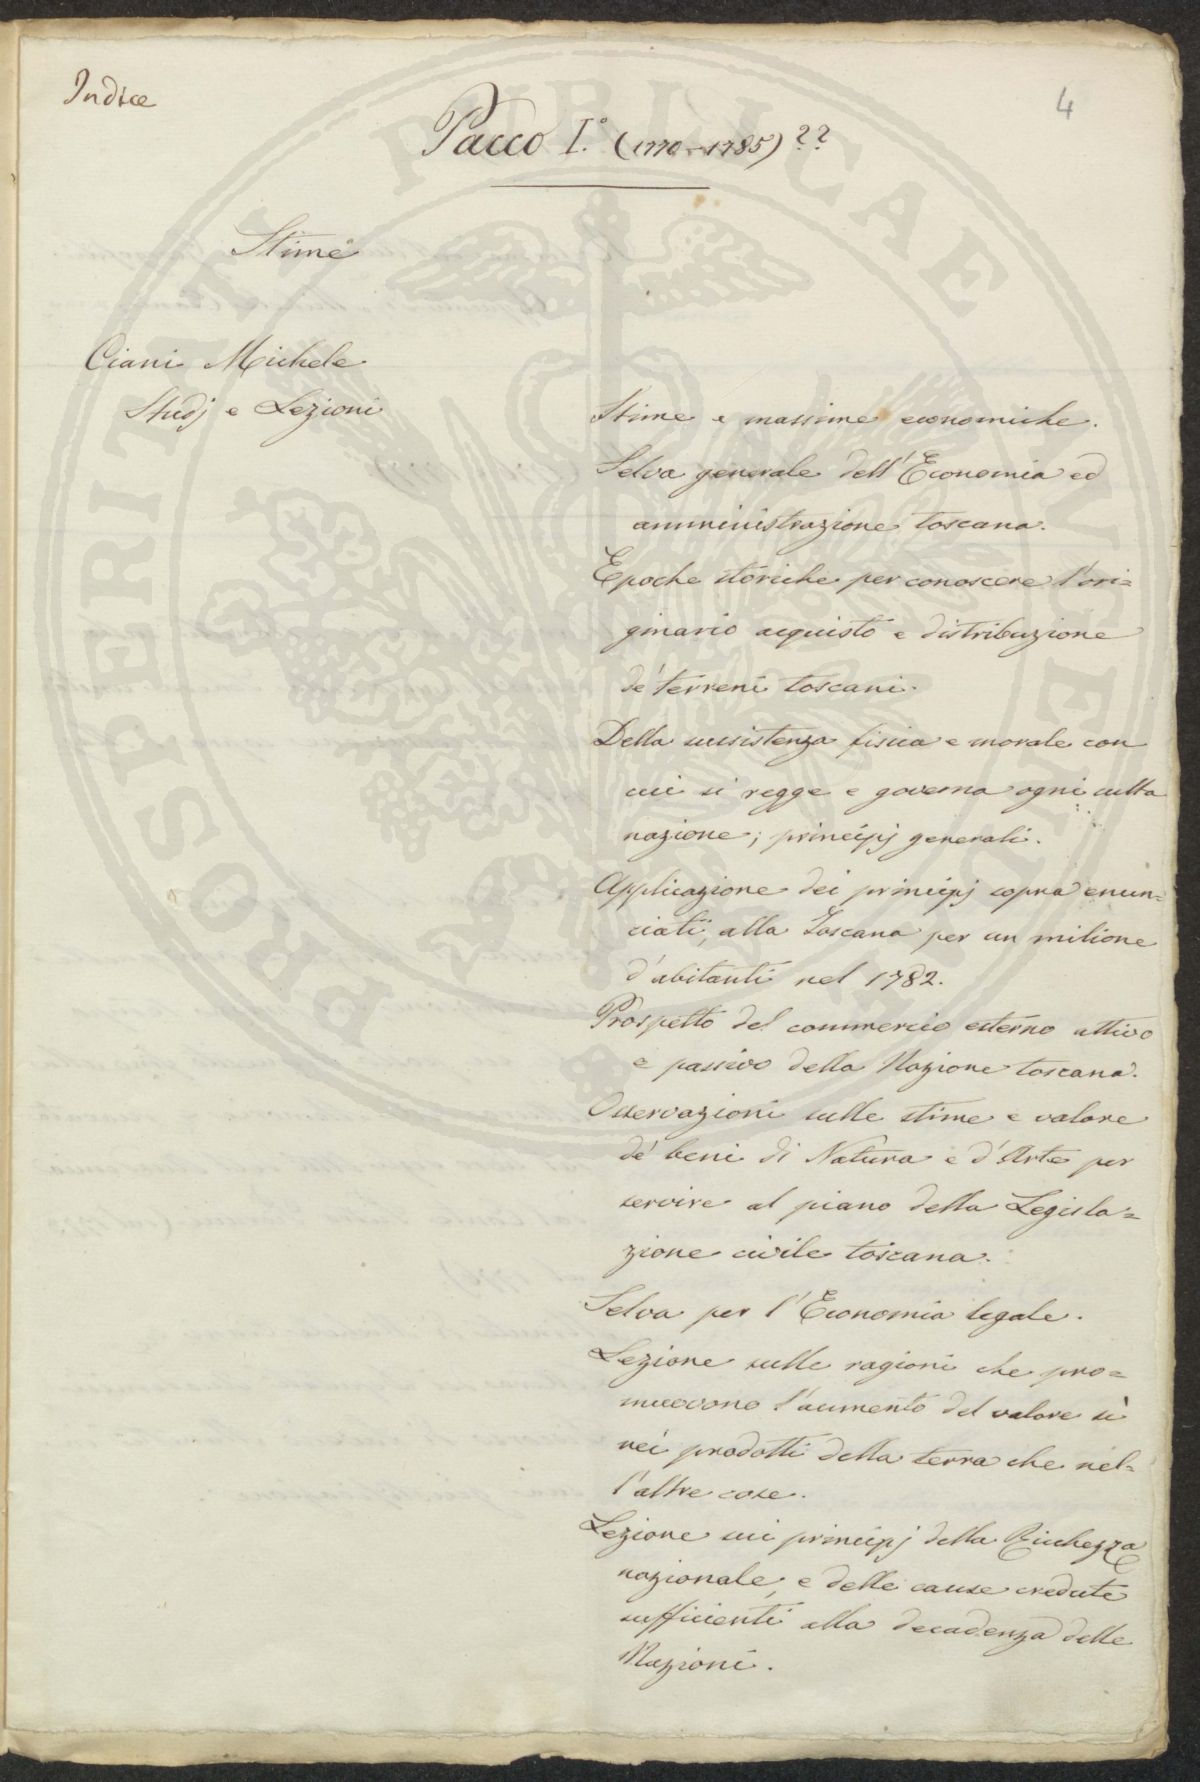 Indice
4
Pacco I.° (1770-1785)??
Stime
Ciani Michele
Studj e Lezioni
Stime e massime economiche.
Selva generale dell'Economia ed
amministrazione toscana.
Epoche storiche per conoscere l'ori=
ginario acquisto e distribuzione
de' terreni toscani.
Della sussistenza fisica e morale con
cui si regge e governa ogni culta
nazione; principj generali.
Applicazione dei principj sopra enun=
ciati, alla Toscana per un milione
d'abitanti nel 1782.
Prospetto del commercio esterno attivo
e passivo della Nazione toscana.
Osservazioni sulle stime e valore
de' beni di Natura e d'Arte per
servire al piano della Legisla=
zione civile toscana.
Selva per l'Economia legale.
Lezione sulle ragioni che pro=
muovono l'aumento del valore sì
nei prodotti della terra che nel=
l'altre cose.
Lezione sui principj della Ricchezza
nazionale, e delle cause credute
sufficienti alla decadenza delle
Nazioni.
PROSPERITATI PUBLICAE AUGENDAE